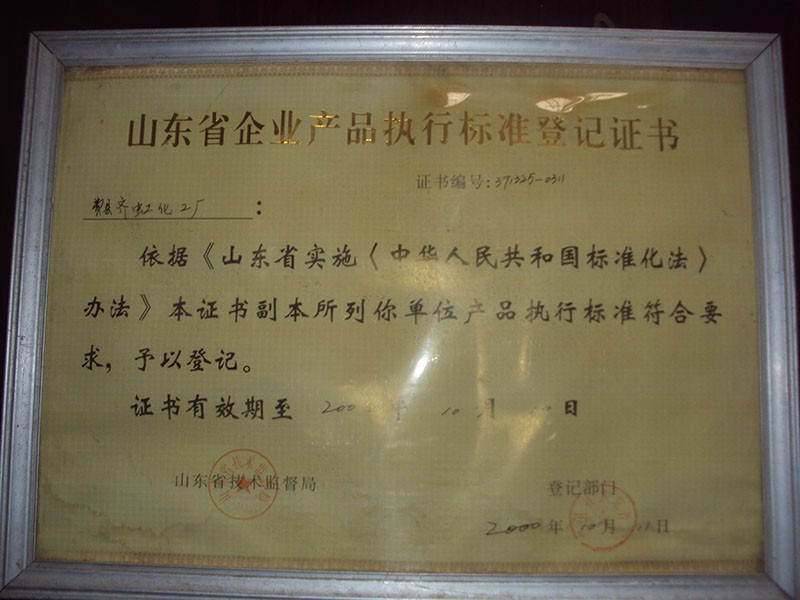 山东省企业产品执行标准登记证书
证书编号:371325-0311
费县齐虫工化工厂:
依据《山东省实施〈中华人民共和国标准化法〉
办法》本证书副本所列你单位产品执行标准符合要
求,予以登记。
证书有效期至 年10月10日
山东省技术监督局
登记部门
2000年10月11日